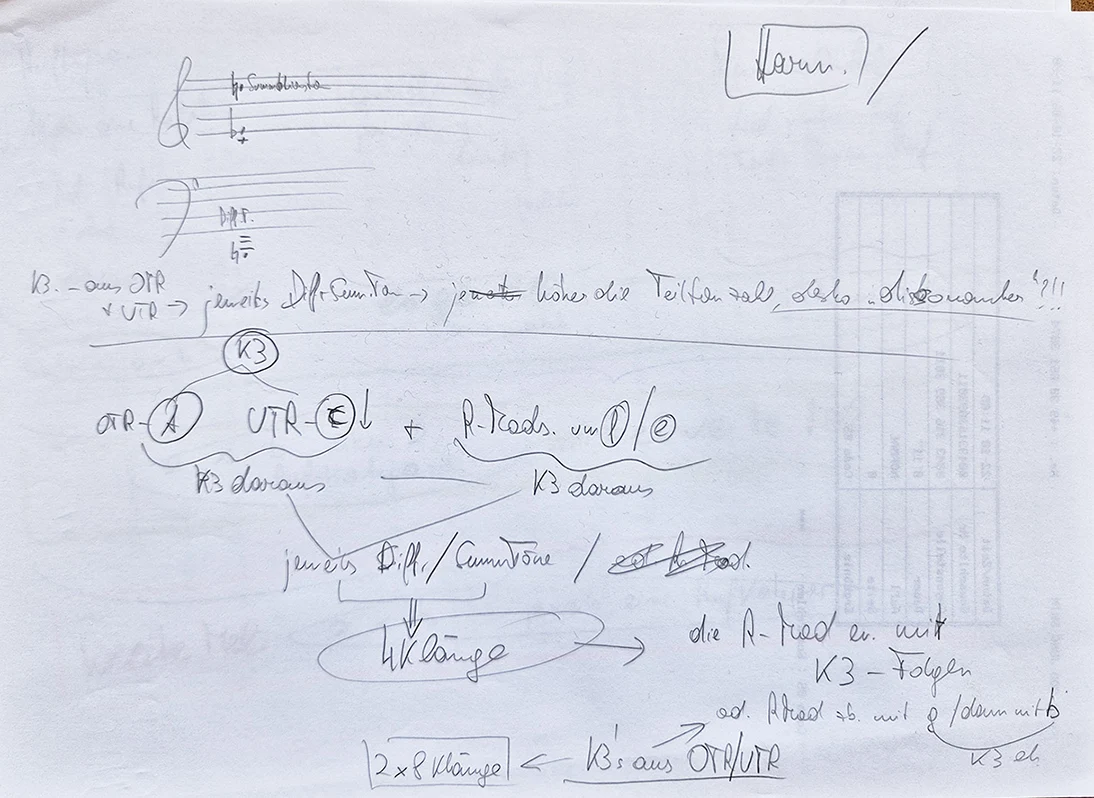 Harm. /
Summationston
Diff T.
K3. – aus OTR
+ UTR → jeweils Diff+SummTon → je höher die Teiltonzahl, desto „dissonanter“?!!
K3
OTR – A UTR – C ↓ + R-Mods. um /e
K3 daraus K3 daraus
jeweils Diff./SummTöne /
4 Klänge → die R-Mod en. mit
K3 – Folgen
od. RMod zb. mit g /dann mit b
K3 eh
2x8 Klänge ← K3's aus OTR/UTR